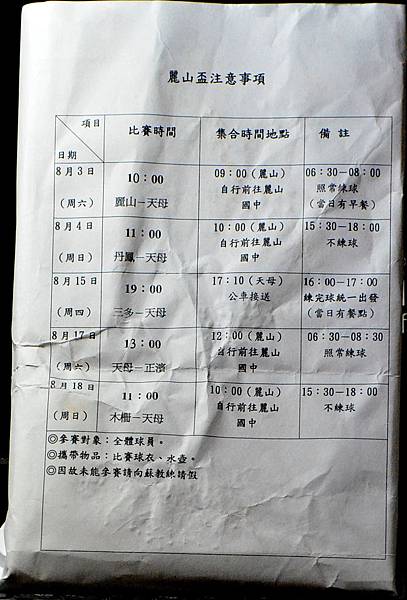 麗山盃注意事項
項目 比賽時間 集合時間地點 備註
日期
8月3日 10：00 09：00（麗山） 06：30－08：00
自行前往麗山 照常練球
（周六） 麗山－天母 國中 （當日有早餐）
8月4日 11：00 10：00（麗山） 15：30－18：00
自行前往麗山 不練球
（周日） 丹鳳－天母 國中
8月15日 19：00 17：10（天母） 16：00－17：00
公車接送 練完球統一出發
（周四） 三多－天母 （當日有餐點）
8月17日 13：00 12：00（麗山） 06：30－08：30
自行前往麗山 照常練球
（周六） 天母－正濱 國中
8月18日 11：00 10：00（麗山） 15：30－18：00
自行前往麗山 不練球
（周日） 木柵－天母 國中
◎參賽對象：全體球員。
◎攜帶物品：比賽球衣、水壺。
◎因故未能參賽請向蘇教練請假